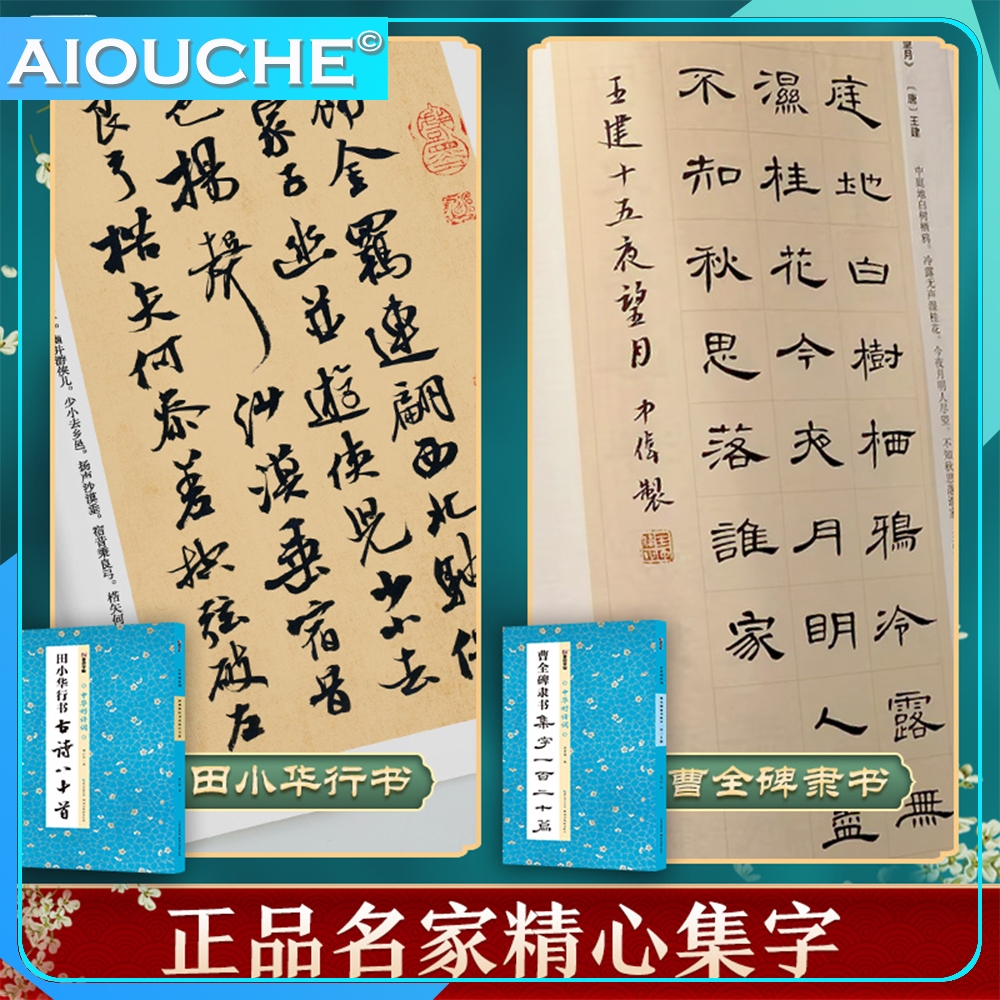 AIOUCHE©
金羈連翩西北馳
家子幽并遊俠兒少小去
揚聲沙漠垂宿昔
良弓楛矢何參差控弦破左
少小去乡邑。扬声沙漠垂。宿昔秉良弓。楛矢何
望月》 〔唐〕王建
中庭地白树栖鸦。冷露无声湿桂花。今夜月明人尽望。不知秋思落谁家
庭地白樹栖鴉冷露無
濕桂花今夜月明人盡
不知秋思落誰家
王建十五夜望月
製
田小华行书
古诗八十首
中华好诗词
田小华行书
曹全碑隶书
集字一百二十篇
中华好诗词
曹全碑隶书
正品名家精心集字